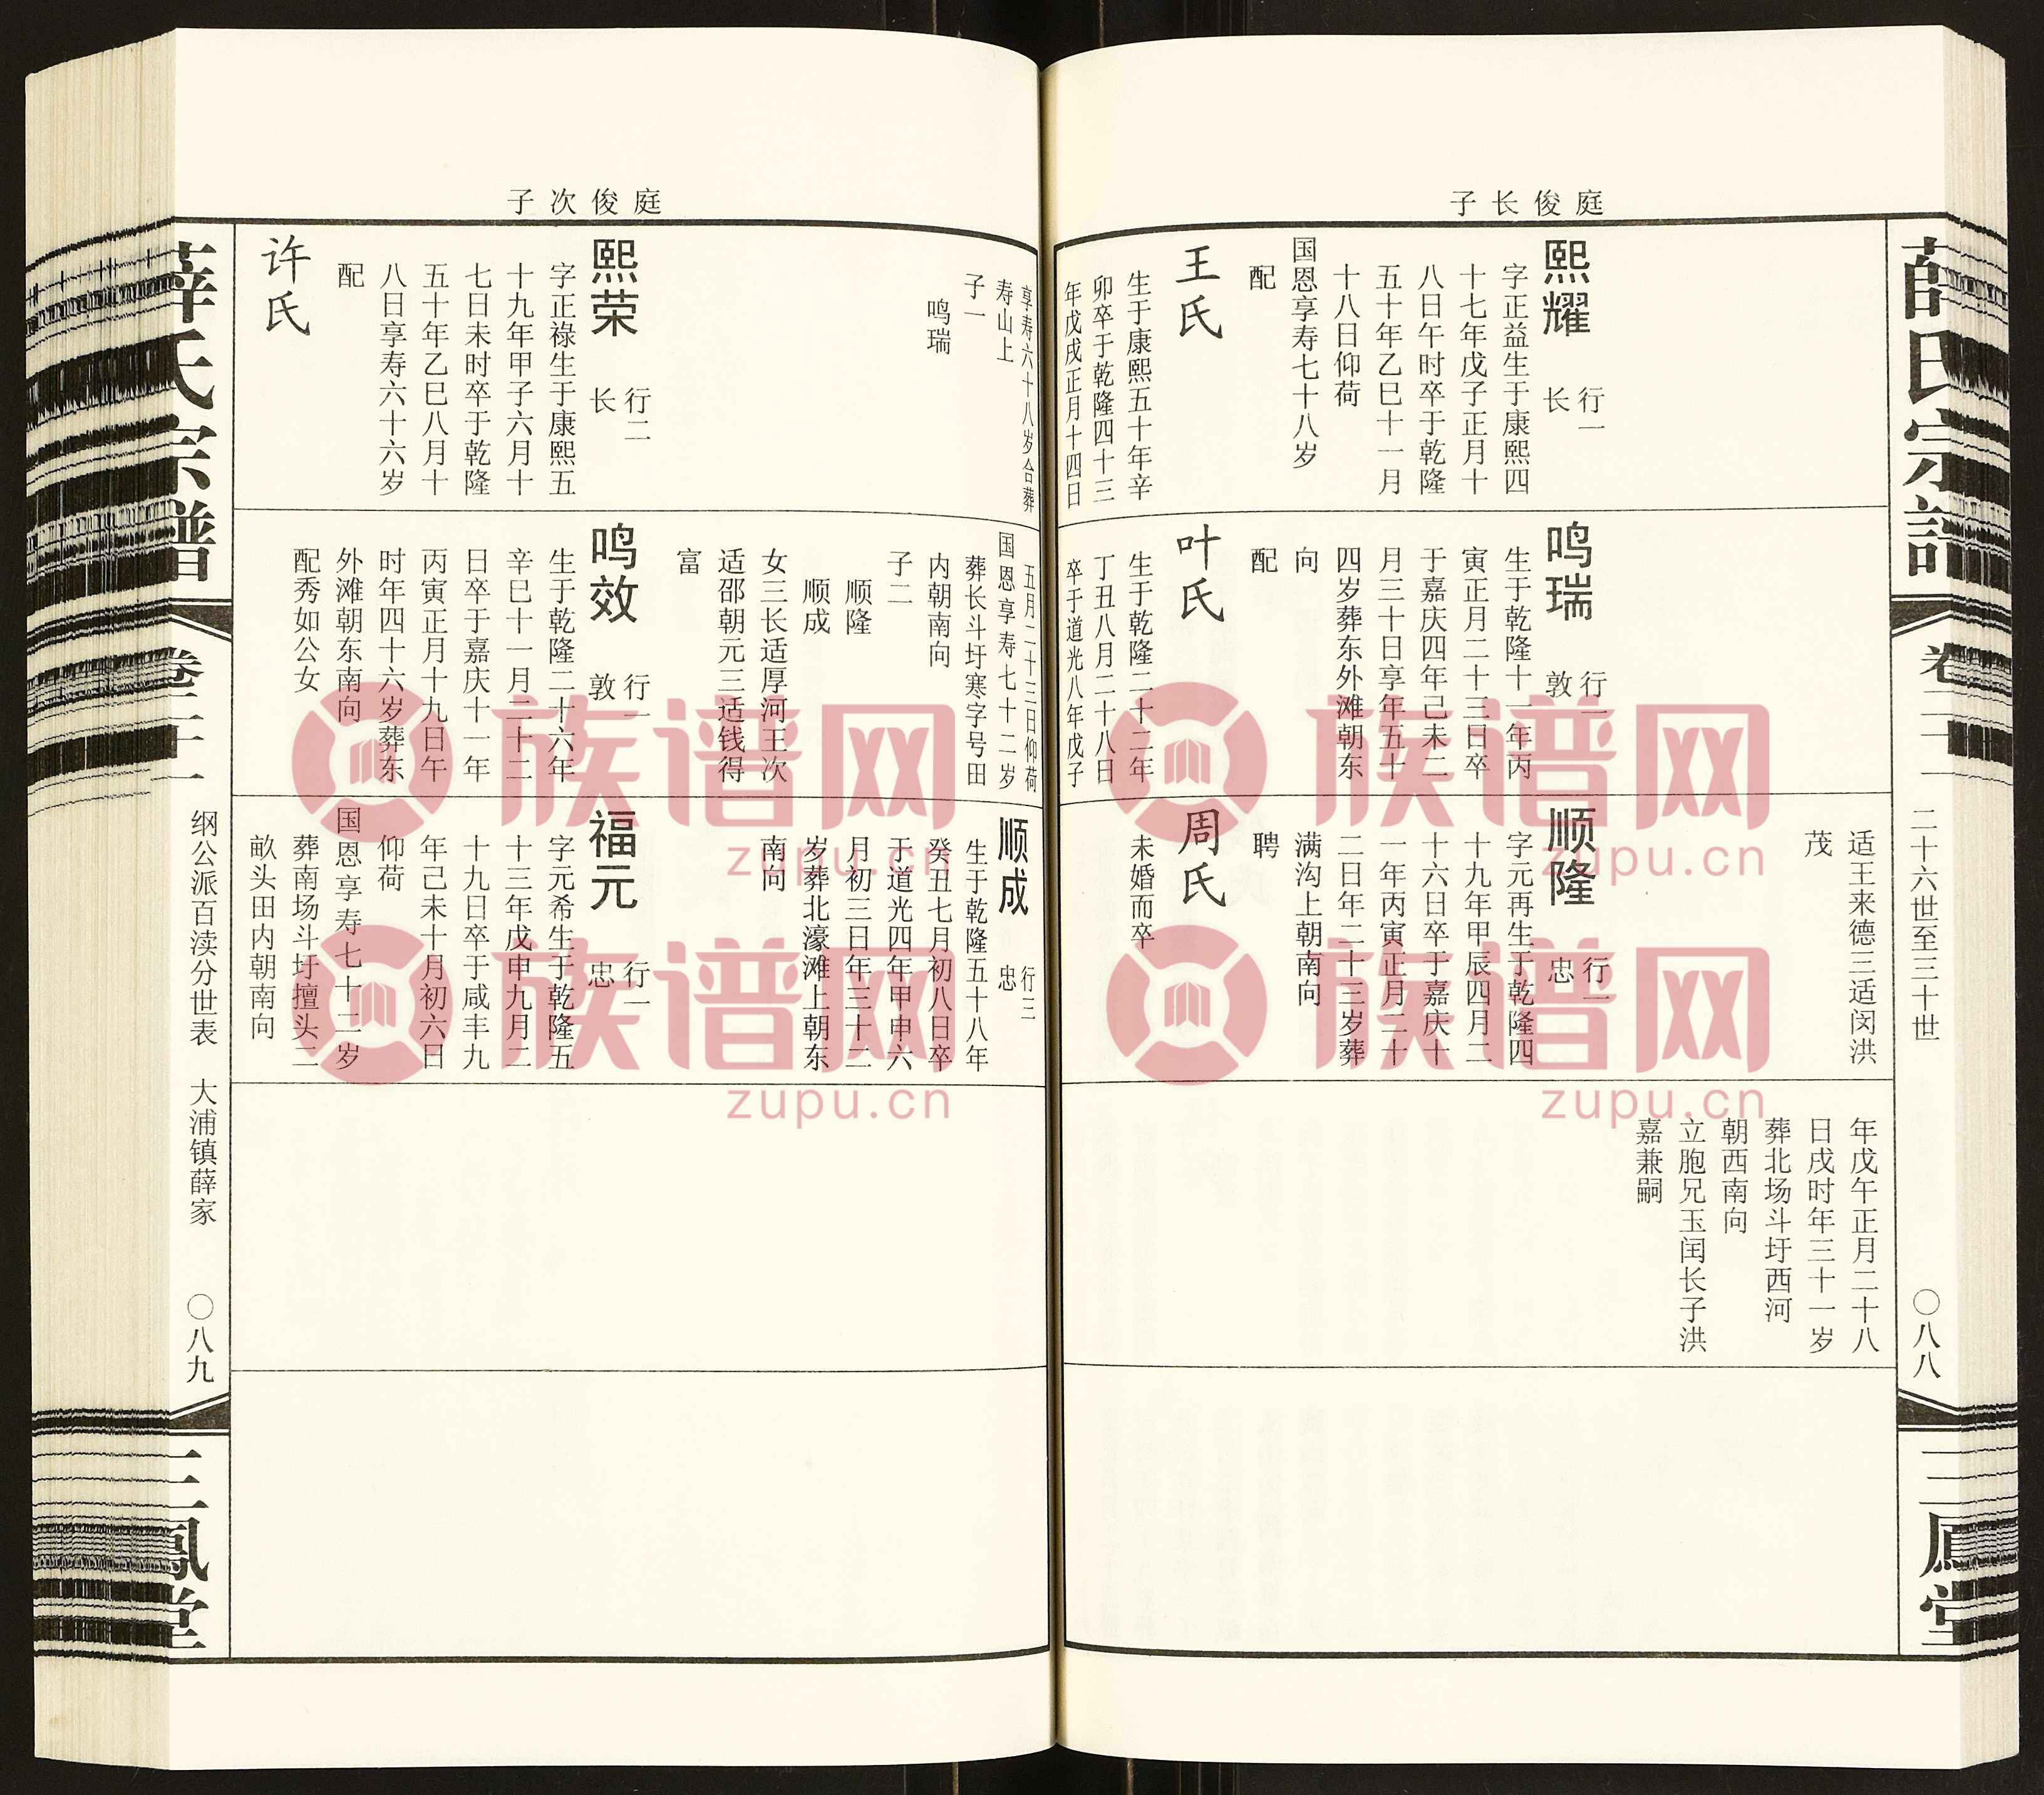 薛氏宗譜
卷二十一
二十六世至三十世
〇八八
三鳳堂
庭俊长子
熙耀
行一
长
字正益生于康熙四
十七年戊子正月十
八日午时卒于乾隆
五十年乙巳十一月
十八日仰荷
国恩享寿七十八岁
配
王氏
生于康熙五十年辛
卯卒于乾隆四十三
年戊戌正月十四日
鸣瑞
行一
敦
生于乾隆十一年丙
寅正月二十三日卒
于嘉庆四年己未二
月三十日享年五十
四岁葬东外滩朝东
向
配
叶氏
生于乾隆二十二年
丁丑八月二十八日
卒于道光八年戊子
适王来德三适闵洪
茂
顺隆
行一
忠
字元再生于乾隆四
十九年甲辰四月二
十六日卒于嘉庆十
一年丙寅正月二十
二日年二十三岁葬
满沟上朝南向
聘
周氏
未婚而卒
年戊午正月二十八
日戌时年三十一岁
葬北场斗圩西河
朝西南向
立胞兄玉闰长子洪
嘉兼嗣
庭俊次子
享寿六十八岁合葬
寿山上
子一
鸣瑞
熙荣
行二
长
字正禄生于康熙五
十九年甲子六月十
七日未时卒于乾隆
五十年乙巳八月十
八日享寿六十六岁
配
许氏
五月二十三日仰荷
国恩享寿七十二岁
葬长斗圩寒字号田
内朝南向
子二
顺隆
顺成
女三长适厚河王次
适邵朝元三适钱得
富
鸣效
行一
敦
生于乾隆二十六年
辛巳十一月二十二
日卒于嘉庆十一年
丙寅正月十九日午
时年四十六岁葬东
外滩朝东南向
配秀如公女
顺成
行三
忠
生于乾隆五十八年
癸丑七月初八日卒
于道光四年甲申六
月初三日年三十二
岁葬北濠滩上朝东
南向
福元
行一
忠
字元希生于乾隆五
十三年戊申九月二
十九日卒于咸丰九
年己未十月初六日
仰荷
国恩享寿七十二岁
葬南场斗圩擅头二
畝头田内朝南向
薛氏宗譜
卷二十一
纲公派百渎分世表 大浦镇薛家
〇八九
三鳳堂
族谱网
zupu.cn
族谱网
zupu.cn
族谱网
zupu.cn
族谱网
zupu.cn